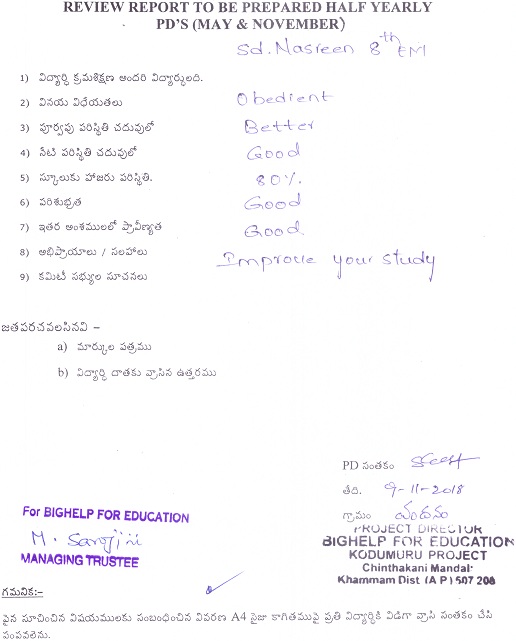 REVIEW REPORT TO BE PREPARED HALF YEARLY
PD'S (MAY & NOVEMBER)
Sd. Nasreen 8th EM
1) విద్యార్థి క్రమశిక్షణ అందరి విద్యార్థులది.
2) వినయ విధేయతలు Obedient
3) పూర్వపు పరిస్థితి చదువులో Better
4) నేటి పరిస్థితి చదువులో Good
5) స్కూలుకు హాజరు పరిస్థితి. 80%
6) పరిశుభ్రత Good
7) ఇతర అంశములలో ప్రావీణ్యత Good
8) అభిప్రాయాలు / సలహాలు Improve your study
9) కమిటీ సభ్యుల సూచనలు
జతపరచవలసినవి –
a) మార్కుల పత్రము
b) విద్యార్థి దాతకు వ్రాసిన ఉత్తరము
PD సంతకం
తేది. 9-11-2018
గ్రామం వందనం
For BIGHELP FOR EDUCATION
M. Sarojini
MANAGING TRUSTEE
PROJECT DIRECTOR
BIGHELP FOR EDUCATION
KODUMURU PROJECT
Chinthakani Mandal
Khammam Dist (A P) 507 208
గమనిక:-
పైన సూచించిన విషయములకు సంబంధించిన వివరణ A4 సైజు కాగితముపై ప్రతి విద్యార్థికి విడిగా వ్రాసి సంతకం చేసి
పంపవలెను.